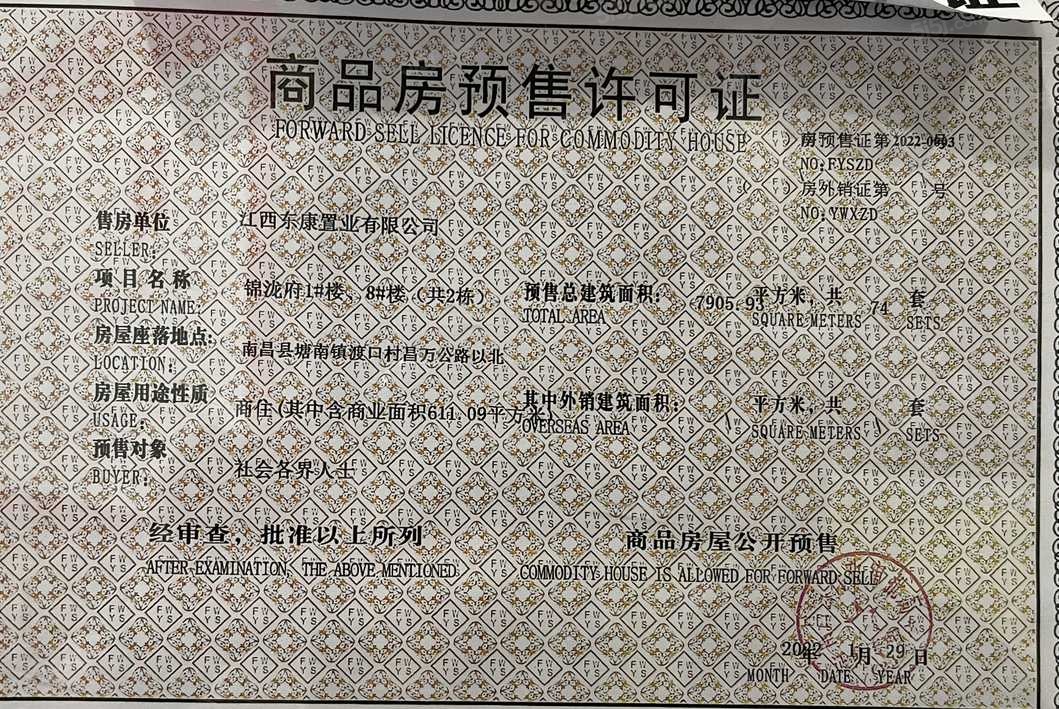 商品房预售许可证
FORWARD SELL LICENCE FOR COMMODITY HOUSE
房预售证第2022-0003
NO:FYSZD
房外销证第 号
NO:YWXZD
售房单位 江西东康置业有限公司
SELLER:
项目名称 锦泷府1#楼、8#楼(共2栋) 预售总建筑面积: 7905.9 平方米,共 74 套
PROJECT NAME: TOTAL AREA SQUARE METERS SETS
房屋座落地点: 南昌县塘南镇渡口村昌万公路以北
LOCATION:
房屋用途性质 商住(其中含商业面积611.09平方米) 其中外销建筑面积: \ 平方米,共 \ 套
USAGE: OVERSEAS AREA SQUARE METERS SETS
预售对象 社会各界人士
BUYER:
经审查,批准以上所列 商品房屋公开预售
AFTER EXAMINATION, THE ABOVE MENTIONED COMMODITY HOUSE IS ALLOWED FOR FORWARD SELL
2022年 1月 29日
MONTH DATE YEAR